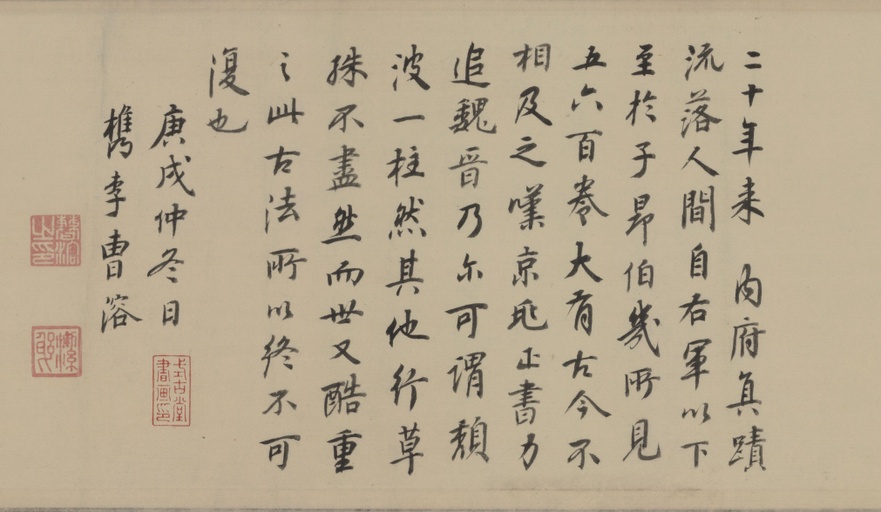 二十年来 内府真蹟
流落人間自右軍以下
至於子昂伯幾所見
五六百卷大有古今不
相及之嘆京兆正書力
追魏晉乃尔可謂頹
波一柱然其他行草
殊不盡然而世又酷重
之此古法所以終不可
復也
庚戌仲冬日
檇李曹溶
式古堂書画印